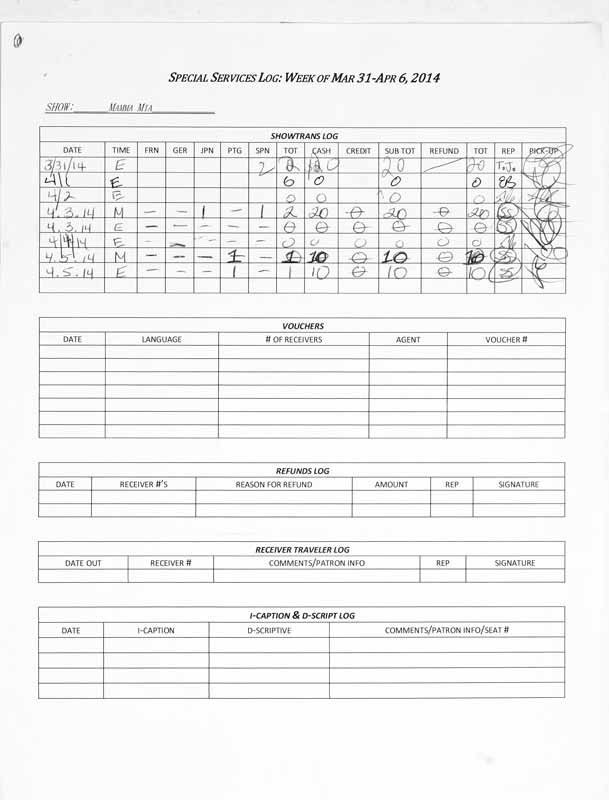 SPECIAL SERVICES LOG: WEEK OF MAR 31-APR 6, 2014
SHOW: MAMMA MIA
SHOWTRANS LOG
DATE TIME FRN GER JPN PTG SPN TOT CASH CREDIT SUB TOT REFUND TOT REP PICK-UP
3/31/14 E 2 2 20 20 20 T.J.
4/1 E 0 0 0 0 EB
4/2 E 0 0 0 0
4.3.14 M — — 1 — 1 2 20 0 20 0 20 SS
4.3.14 E — — — — — 0 0 0 0 0 0 SS
4/4/14 E — — — — — 0 0 0 0 0
4.5.14 M — — — 1 — 1 10 0 10 0 10 SS
4.5.14 E — — — 1 — 1 10 0 10 0 10 SS
VOUCHERS
DATE LANGUAGE # OF RECEIVERS AGENT VOUCHER #
REFUNDS LOG
DATE RECEIVER #'S REASON FOR REFUND AMOUNT REP SIGNATURE
RECEIVER TRAVELER LOG
DATE OUT RECEIVER # COMMENTS/PATRON INFO REP SIGNATURE
I-CAPTION & D-SCRIPT LOG
DATE I-CAPTION D-SCRIPTIVE COMMENTS/PATRON INFO/SEAT #